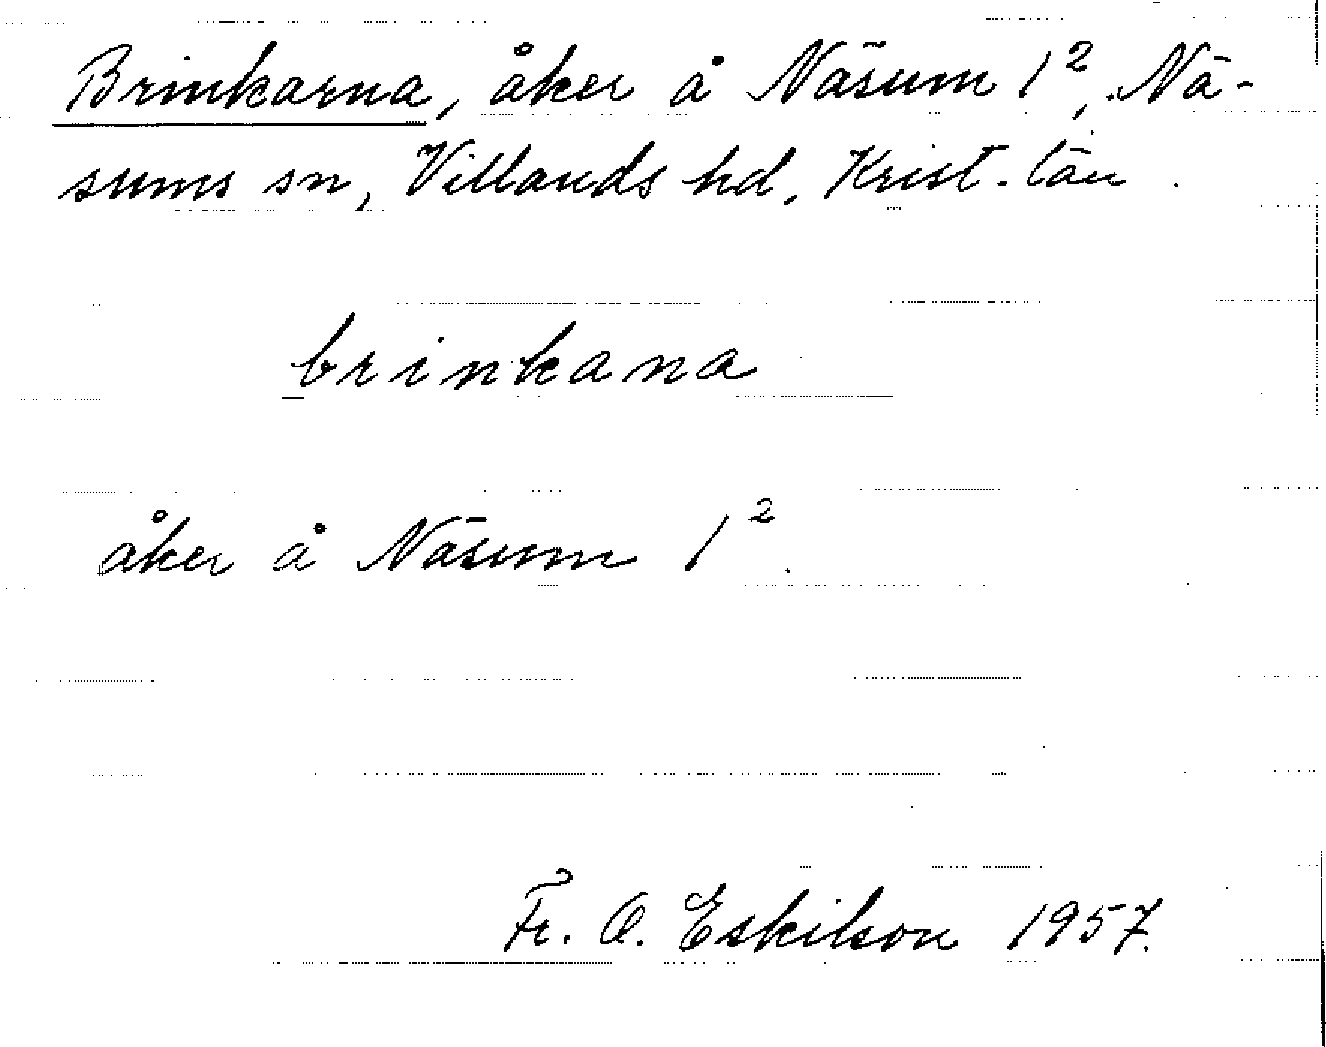 Brinkarna, åker å Näsum 1², Nä-
sums sn, Villands hd, Krist. län.
brinkana
åker å Näsum 1².
Fr. O. Eskilson 1957.